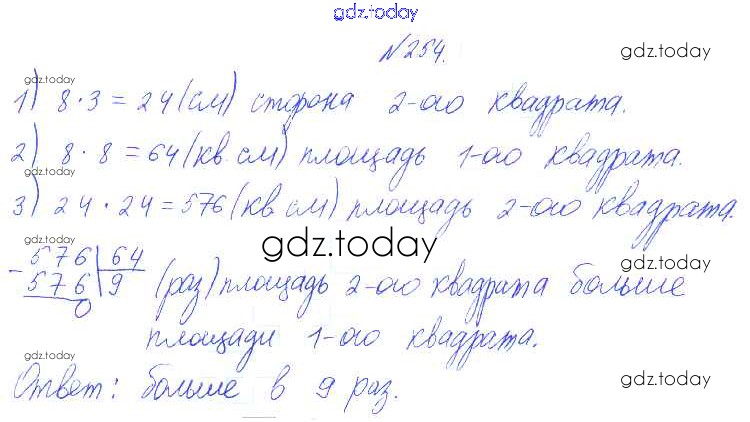 gdz.today
№254.
gdz.today
gdz.today
1) 8·3=24(см) сторона 2-ого квадрата.
2) 8·8=64(кв см) площадь 1-ого квадрата.
gdz.today
gdz.today
3) 24·24=576(кв см) площадь 2-ого квадрата.
gdz.today
576 64
- 576 9 (раз) площадь 2-ого квадрата больше
0
gdz.today
площади 1-ого квадрата.
gdz.today
Ответ: больше в 9 раз.
gdz.today
gdz.today